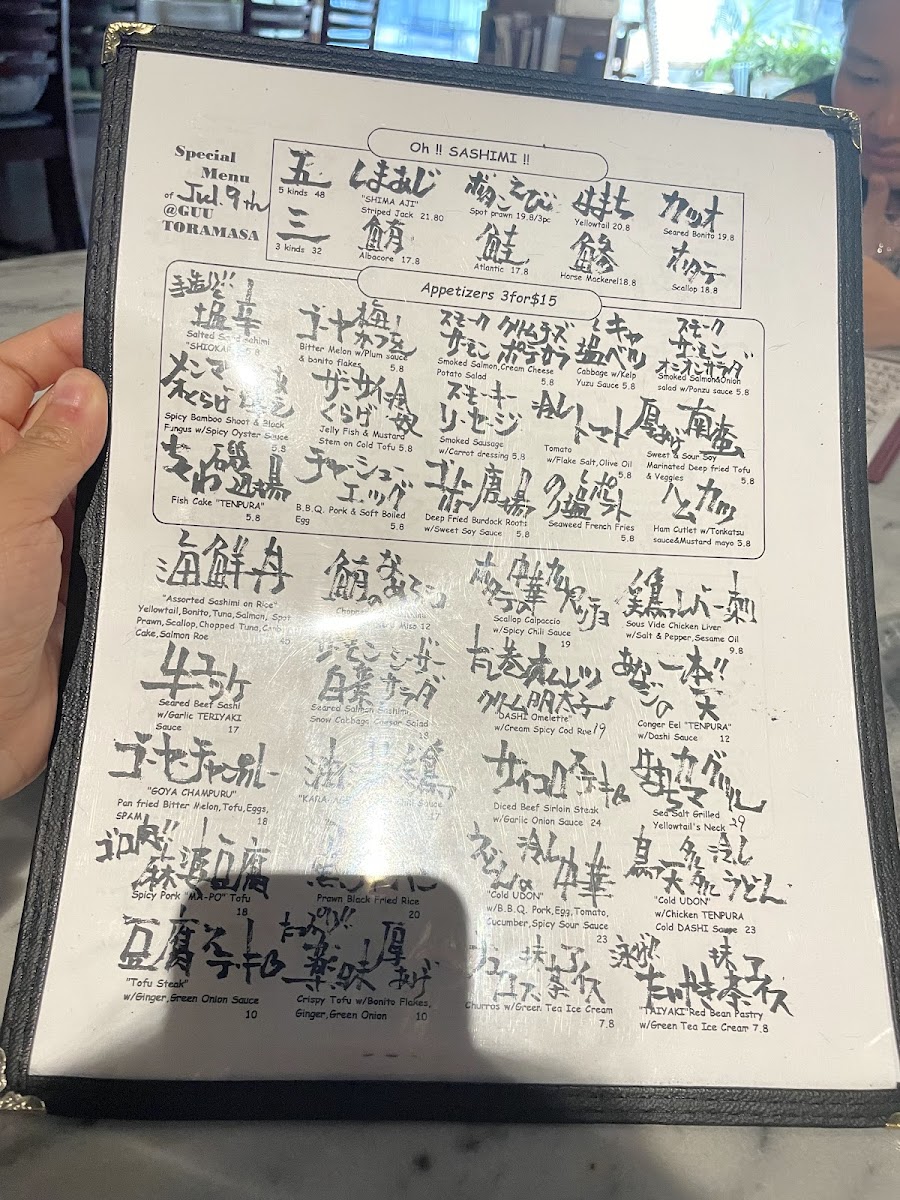 Special
Menu
of Jul. 9th
@GUU
TORAMASA
Oh !! SASHIMI !!
五
5 kinds 48
しまあじ
"SHIMA AJI"
Striped Jack 21.80
えび
Spot prawn 19.8/3pc
はまち
Yellowtail 20.8
カツオ
Seared Bonito 19.8
三
3 kinds 32
鮪
Albacore 17.8
鮭
Atlantic 17.8
鯵
Horse Mackerel 18.8
ホタテ
Scallop 18.8
Appetizers 3for$15
手造り!!
塩辛
Salted Squid
"SHIOKARA"
ゴーヤ梅
Bitter Melon w/Plum sauce
& bonito flakes
スモークサーモン クリームチーズ
ポテサラ
Smoked Salmon,Cream Cheese
Potato Salad 5.8
塩キャベツ
Cabbage w/Kelp
Yuzu Sauce 5.8
スモーク
サーモン
オニオンサラダ
Smoked Salmon&Onion
salad w/Ponzu sauce 5.8
メンマ
木くらげ
Spicy Bamboo Shoot & Black
Fungus w/Spicy Oyster Sauce
5.8
ザーサイ
くらげ 冷奴
Jelly Fish & Mustard
Stem on Cold Tofu 5.8
スモーキー
ソーセージ
Smoked Sausage
w/Carrot dressing 5.8
冷し
トマト
Tomato
w/Flake Salt,Olive Oil
5.8
厚あげ 南蛮
Sweet & Sour Soy
Marinated Deep fried Tofu
& Veggies 5.8
ちくわ磯辺揚
Fish Cake "TENPURA"
5.8
チャーシュー
エッグ
B.B.Q. Pork & Soft Boiled
Egg 5.8
ゴボー唐揚
Deep Fried Burdock Roots
w/Sweet Soy Sauce 5.8
のり塩ポテト
Seaweed French Fries
5.8
ハムカツ
Ham Cutlet w/Tonkatsu
sauce&Mustard mayo 5.8
海鮮丼
"Assorted Sashimi on Rice"
Yellowtail,Bonito,Tuna,Salmon, Spot
Prawn,Scallop,Chopped Tuna,
Cake,Salmon Roe
鮪のなめろう
Miso 12
ホタテの中華カルパッチョ
Scallop Calpaccio
w/Spicy Chili Sauce
19
鶏レバー刺
Sous Vide Chicken Liver
w/Salt & Pepper,Sesame Oil
9.8
牛ユッケ
Seared Beef Sashi
w/Garlic TERIYAKI
Sauce 17
サーモン シーザー
白菜サラダ
Seared Salmon Sashimi
Snow Cabbage Caesar Salad
18
だし巻オムレツ
クリーム明太子
"DASHI Omelette"
w/Cream Spicy Cod Roe 19
あなご一本!!
の天
Conger Eel "TENPURA"
w/Dashi Sauce 12
ゴーヤーチャンプルー
"GOYA CHAMPURU"
Pan fried Bitter Melon,Tofu,Eggs,
SPAM 18
油淋鶏
Sauce
17
サイコロステーキ
Diced Beef Sirloin Steak
w/Garlic Onion Sauce 24
はまちカマグリル
Sea Salt Grilled
Yellowtail's Neck 29
ゴロ肉!!
麻婆豆腐
Spicy Pork "MA-PO" Tofu
18
Prawn Black Fried Rice
20
冷し中華
"Cold UDON"
w/B.B.Q. Pork,Egg,Tomato,
Cucumber,Spicy Sour Sauce
23
鳥天 冷し
うどん
"Cold UDON"
w/Chicken TENPURA
Cold DASHI Sauce 23
豆腐ステーキ
"Tofu Steak"
w/Ginger,Green Onion Sauce
10
たっぷり!!
薬味 厚あげ
Crispy Tofu w/Bonito Flakes,
Ginger,Green Onion 10
チュロス 抹茶アイス
Churros w/Green Tea Ice Cream
7.8
たいやき 抹茶アイス
"TAIYAKI"Red Bean Pastry
w/Green Tea Ice Cream 7.8